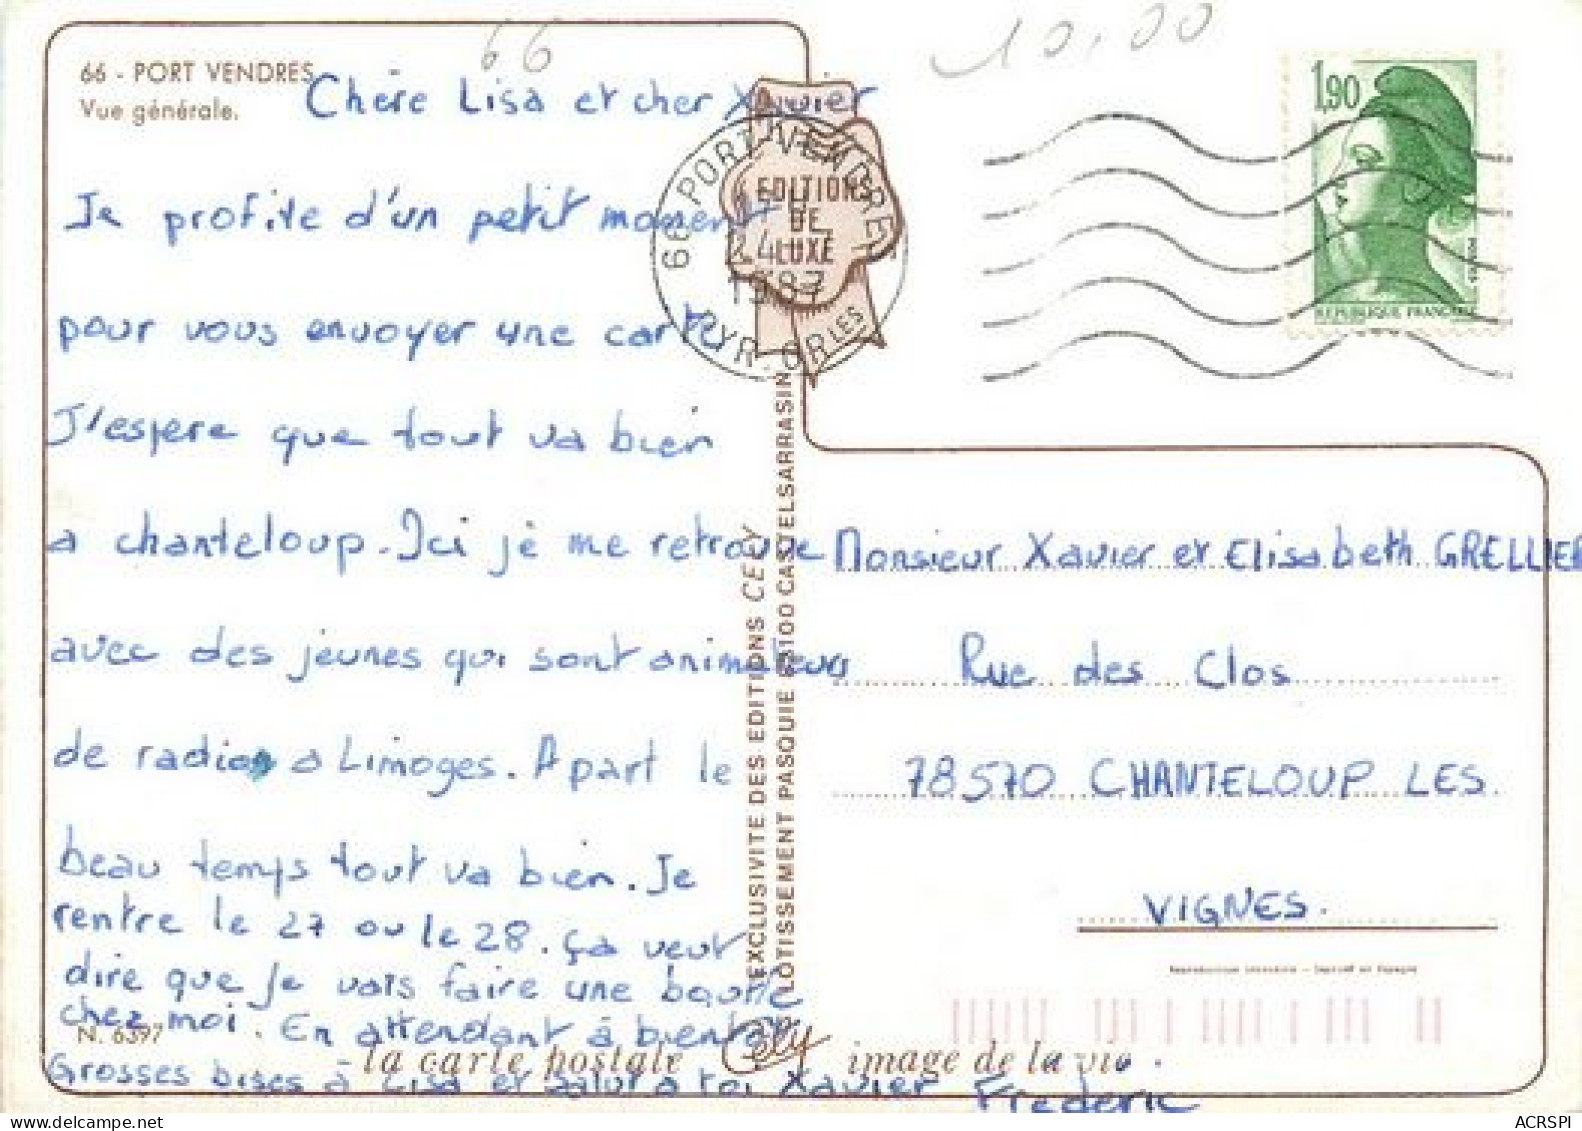 66
10,00
66 - PORT VENDRES
Vue générale.
1,90
REPUBLIQUE FRANÇAISE
66 PORT-VENDRES
24
1987
PYR. OR LES
EDITIONS
DE
LUXE
Chère Lisa et cher Xavier
Je profite d'un petit moment
pour vous envoyer une carte
J'espere que tout va bien
a chanteloup. Ici je me retrouve
avec des jeunes qui sont animateurs
de radio a Limoges. Apart le
beau temps tout va bien. Je
rentre le 27 ou le 28. ça veut
dire que je vais faire une boucle
chez moi. En attendant à bientôt
Grosses bises à Lisa et salut a toi Xavier
Frederic
Monsieur Xavier et Elisabeth GRELLIER
Rue des Clos
78570 CHANTELOUP LES
VIGNES.
EXCLUSIVITE DES EDITIONS CELY
LOTISSEMENT PASQUIE 82100 CASTELSARRASIN
N. 6397
la carte postale Cely image de la vie
ACRSPI